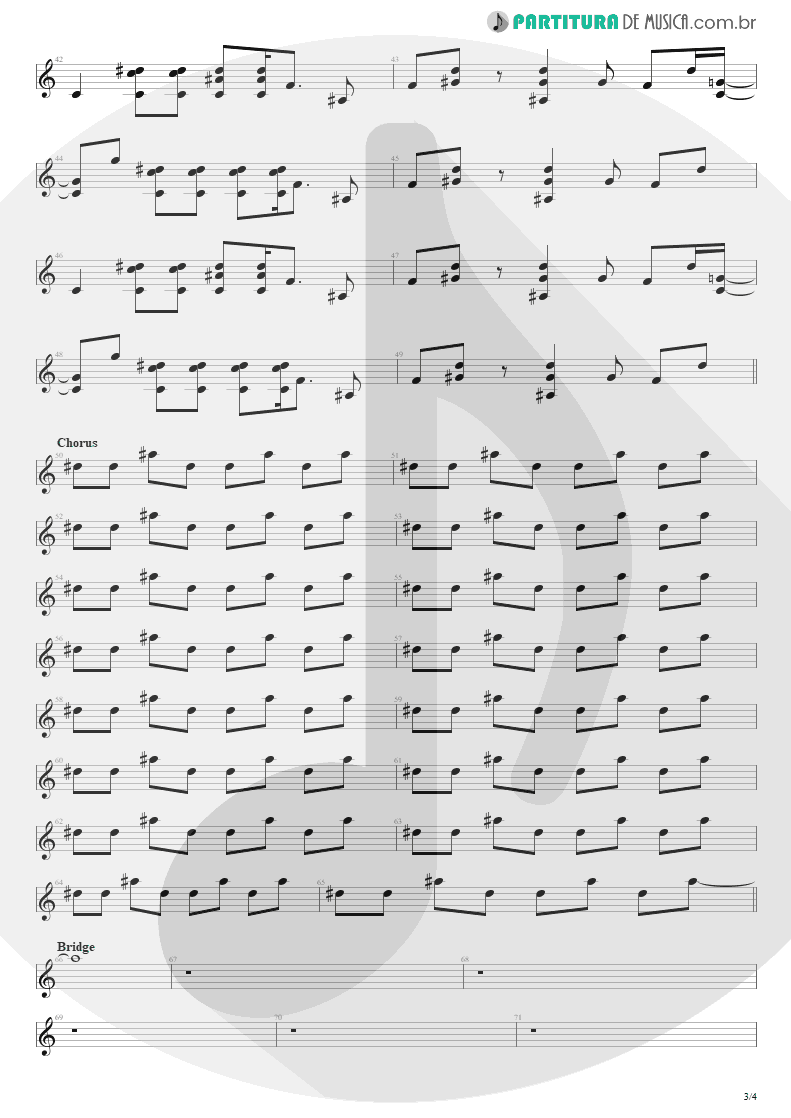 PARTITURA DE MUSICA.com.br
42 43
44 45
46 47
48 49
Chorus
50 51
52 53
54 55
56 57
58 59
60 61
62 63
64 65
Bridge
66 67 68
69 70 71
3/4